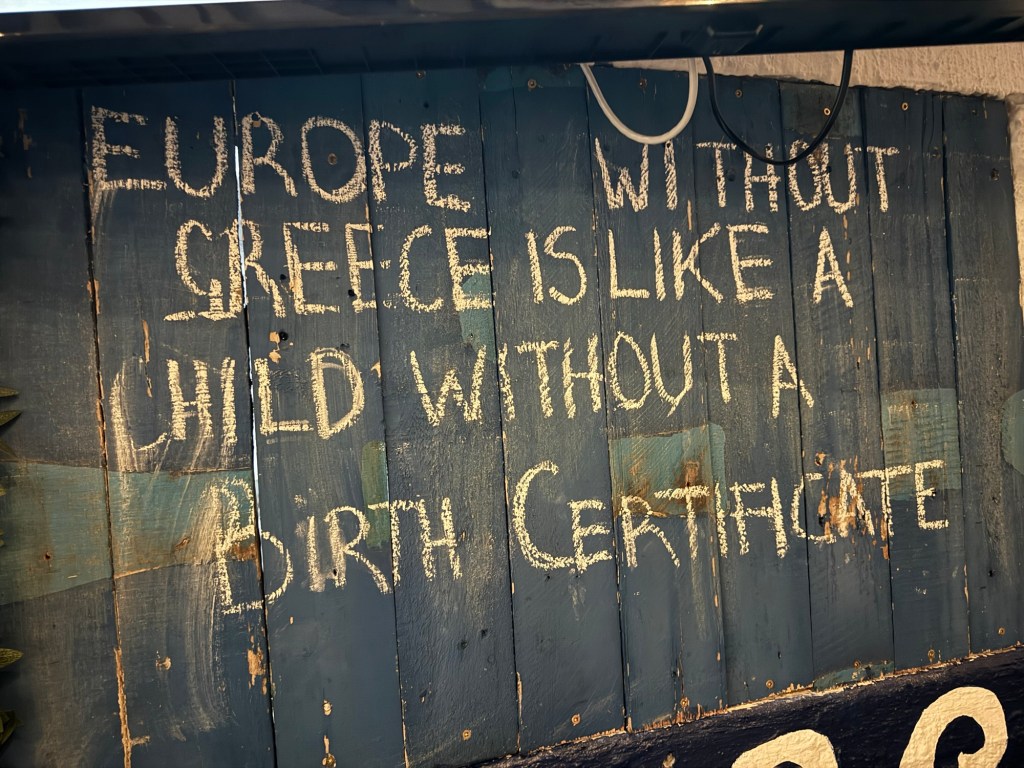 EUROPE WITHOUT
GREECE IS LIKE A
CHILD WITHOUT A
BIRTH CERTIFICATE